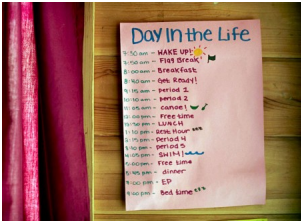 Day In the Life
7:30 am - WAKE UP!
7:50 am - Flag Break!
8:00 am - Breakfast
8:40 am - Get Ready!
9:15 am - period 1
10:10 am - period 2
11:05 am - canoe!
12:00 pm - Free time
12:30 pm - LUNCH
1:30 pm - Rest Hour zzz
2:15 pm - Period 4
3:10 pm - period 5
4:05 pm - SWIM!
5:00 pm - Free time
5:45 pm - dinner
8:00 pm - EP
9:00 pm - Bed time zzz